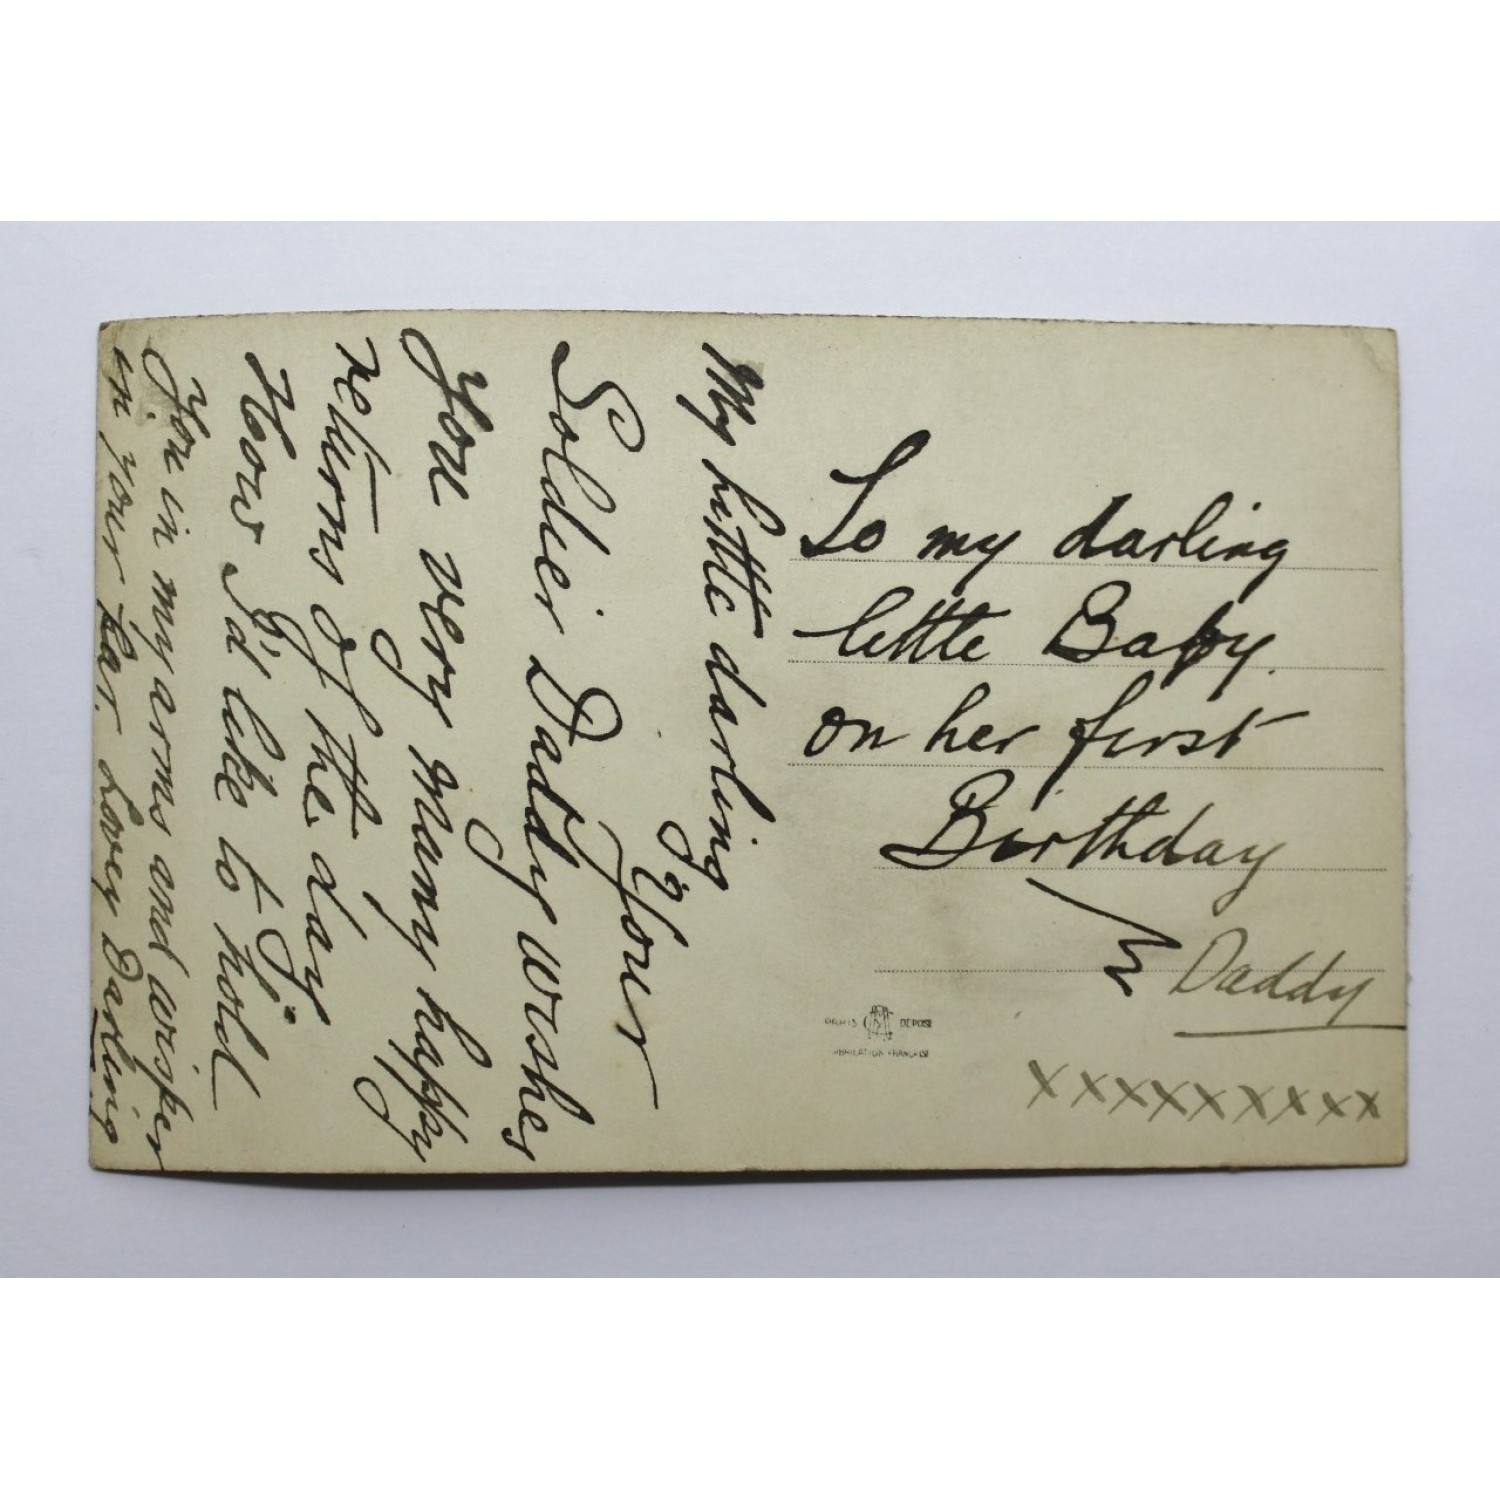 My little darling
Your
Soldier Daddy wishes
You very many happy
returns of the day.
How I'd like to hold
You in my arms and wisper
in your Ear. Lovey Darling
To my darling
little Baby.
on her first
Birthday
Daddy
xxxxxxxxx
DEPOSE